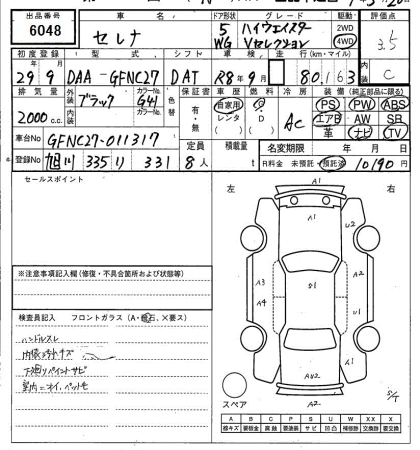 出品番号 車名 ドア形状 グレード 駆動 評価点
6048 セレナ 5 WG ハイウェイスター Vセレクション 2WD 4WD 3.5
初度登録 型式 シフト 車検 走行(km・マイル) 内装
29年9月 DAA-GFNC27 DAT R8年9月 80,163 C
排気量 外装 カラーNo. 色替 保証書 車歴 燃料 冷房 装備(純正部品に限る)
2000c.c. ブラック G41 内装 カラーNo. 有・無 自家用 レンタ G D AC PS PW ABS
エアB AW SR
革 ナビ TV
車台No GFNC27-011317 定員 積載量 名変期限 年 月 日
登録No 旭川 335 り 331 8人 t R料金 未預託・預託済 10190円
セールスポイント
左 右
A1
A1
U2
A3
A4
S1
A2
A1
A2
A2
S/T
スペア
※注意事項記入欄(修復・不具合箇所および状態等)
検査員記入 フロントガラス(A・飛石、×要ス)
ハンドルスレ
内張コキズ
下廻りペイントサビ
室内ニオイ、ペット毛
A B C P S U W X XX X
線キズ 要板金 腐蝕 要塗装 サビ 凹凸 補修跡 要交換 交換跡 要交換